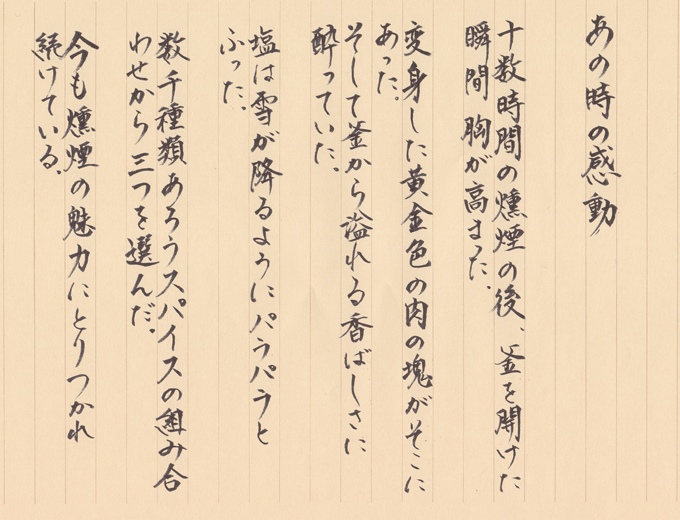 あの時の感動
十数時間の燻煙の後、釜を開けた
瞬間 胸が高まった。
変身した黄金色の肉の塊がそこに
あった。
そして釜から溢れる香ばしさに
酔っていた。
塩は雪が降るようにパラパラと
ふった。
数千種類あろうスパイスの組み合
わせから三つを選んだ。
今も燻煙の魅力にとりつかれ
続けている。